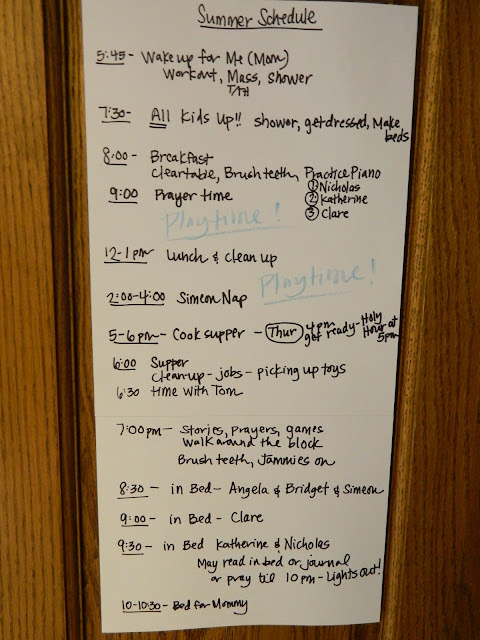 Summer Schedule
5:45- Wake up for Me (Mom)
Workout, Mass, shower
T/TH
7:30- All Kids Up!! shower, get dressed, Make beds
8:00- Breakfast
Clear table, Brush teeth, Practice Piano
① Nicholas
9:00 Prayer time ② Katherine
③ Clare
Playtime!
12-1pm Lunch & clean up
Playtime!
2:00-4:00 Simeon Nap
5-6pm- Cook supper - Thur 4pm get ready- Holy Hour at 5pm
6:00 Supper
Clean-up - jobs - picking up toys
6:30 time with Tom
7:00pm- Stories, Prayers, games
Walk around the block
Brush teeth, Jammies on
8:30 - in Bed- Angela & Bridget & Simeon
9:00 - in Bed - Clare
9:30 - in Bed Katherine & Nicholas
May read in bed or journal
or pray til 10pm - Lights Out!
10-10:30- Bed for Mommy